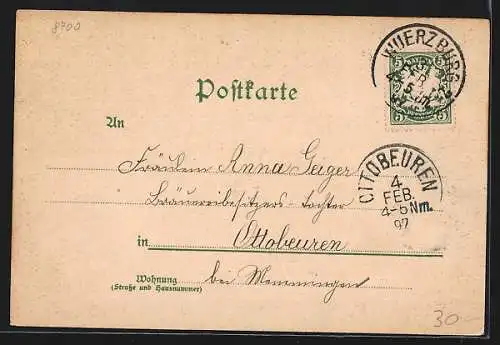 8700
WUERZBURG
BAYERN
5 5
5 5
Postkarte
An
Fräulein Anna Geiger
Bräuereibesitzers-tochter
in Ottobeuren
bei Memmingen
Wohnung
(Straße und Hausnummer)
OTTOBEUREN
4.
FEB.
4-5 Nm.
97
30-